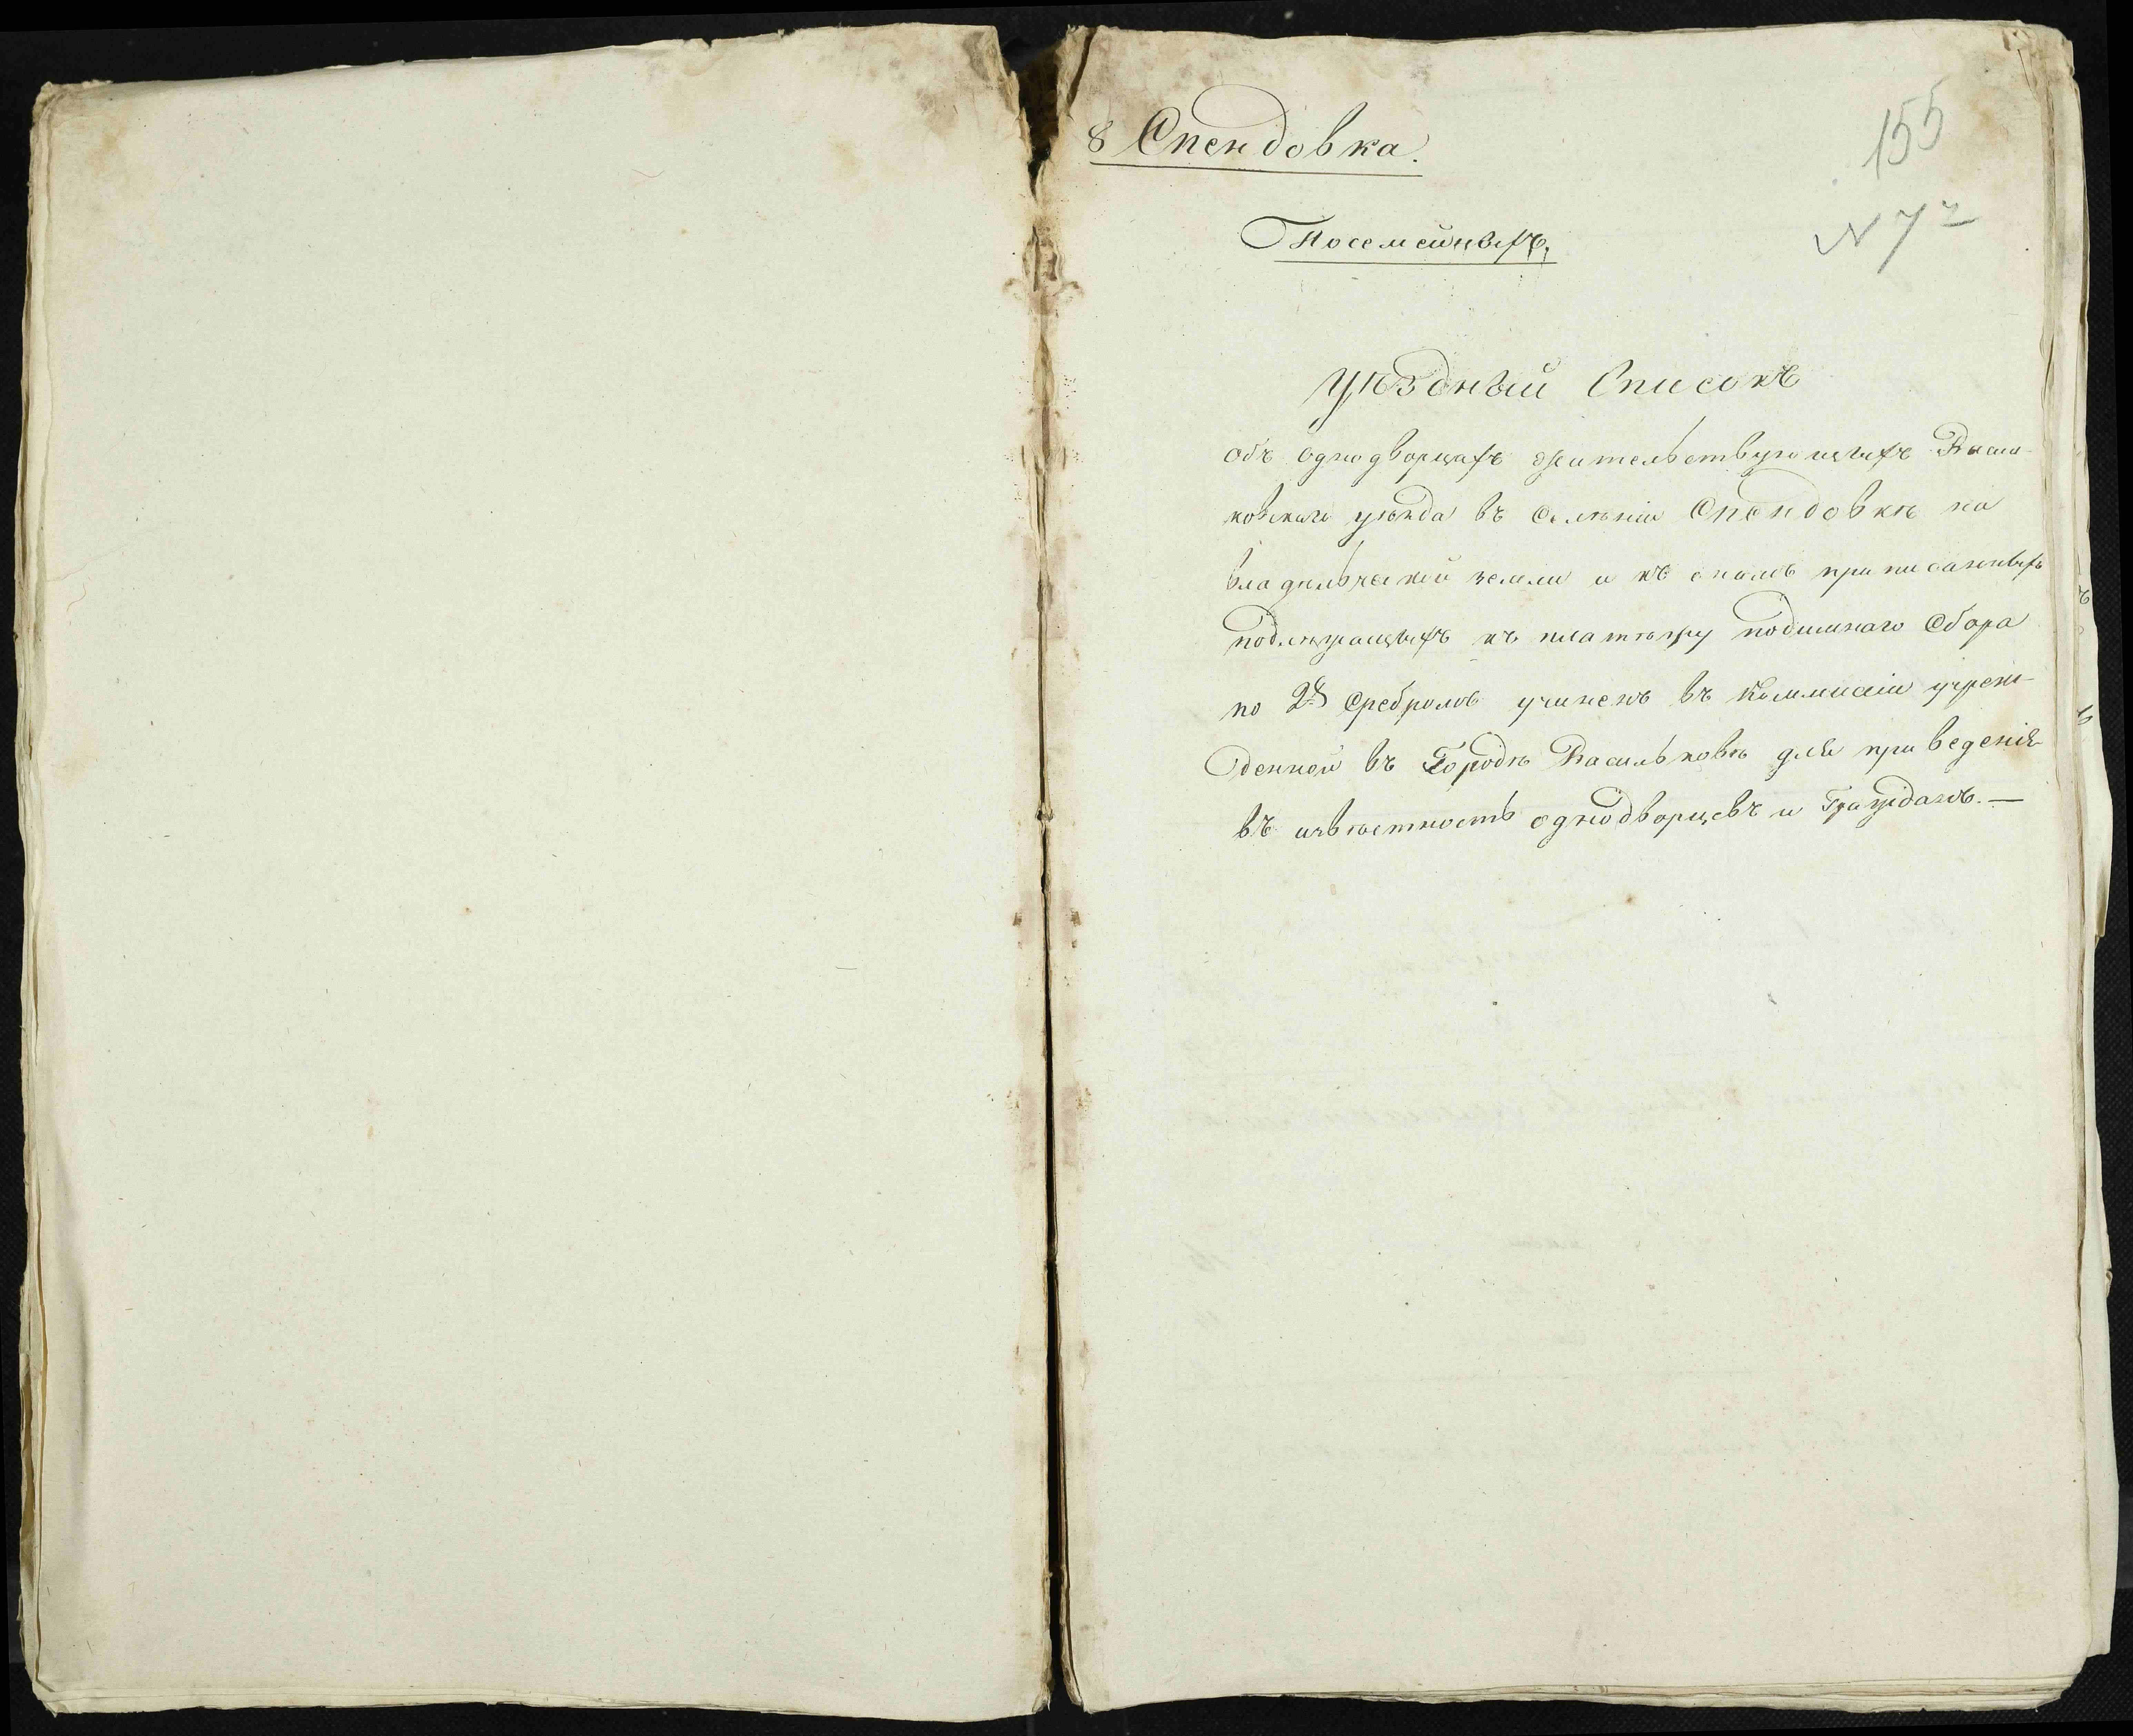 8 Спендовка.
155
Посемейныхъ,
N 72
Уѣздный Списокъ
объ однодворцахъ жительствующихъ Василь-
ковскаго уѣзда въ Селѣніи Спендовкѣ на
владѣльческой земли и къ оной приписанныхъ
подлежащихъ къ платежу подымнаго Сбора
по 2 р сребромъ учиненъ въ Коммисіи учреж-
денной въ Городѣ Васильковѣ для приведенія
въ извѣстность однодворцевъ и Гражданъ. —